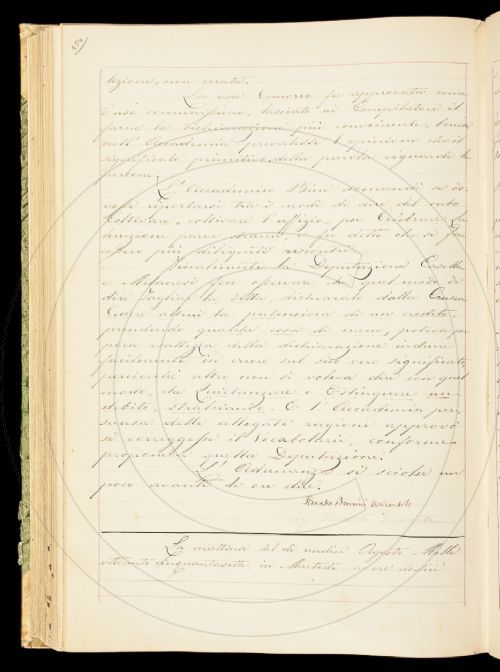 lezione, non errata.
La voce Comorro fu approvata come
d'uso comunissimo, lasciato ad Compilatori il
farne la dichiarazione più conveniente, benchè
nell'Accademia prevalesse l'opinione che il
significato primitivo della parola riguardi le
persone.
L'Accademico Bini domandò se do-
veva riportarsi tra i modi di dire del verbo
Coltivare, coltivare l'uffizio, per Celebrare la
funzione, parve strano e fu detto che si fa-
cessero più diligenti riscontri.
Finalmente la Deputazione Casella
e Milanesi fece osservare che quel modo di
dire Tagliar la detta, dichiarato dalla Crusca
Cedere altrui la pretensione di un credito,
prendendo qualche cosa di meno, poteva per
poca esattezza della dichiarazione indurre
facilmente in errore sul suo vero significato,
perciocchè altro non si voleva dire con quel
modo, che Quietanzare o Estinguere un
debito, stralciando. E l'Accademia per-
suasa delle allegate ragioni approvò
si correggesse il Vocabolario, conforme
proponeva quella Deputazione.
L'Adunanza si sciolse un
poco avanti le ore dieci.
La mattina del dì undici Agosto Mille
ottocento cinquantasette, in Martedì, a ore dodici